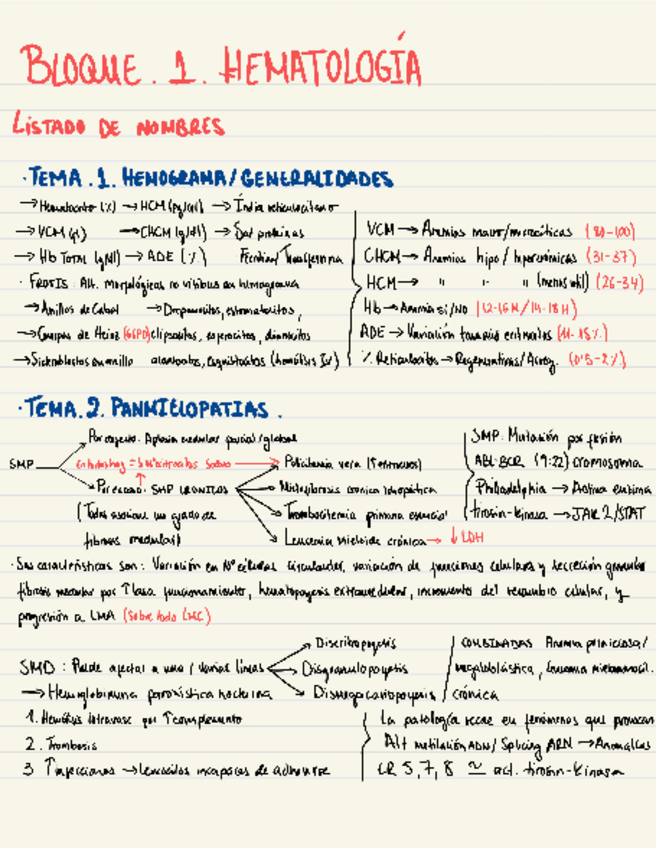 BLOQUE. 1. HEMATOLOGÍA
LISTADO DE NOMBRES
· TEMA. 1. HEMOGRAMA/GENERALIDADES
→ Hematocrito (%) → HCM (pg/cel) → Índice reticulocitario
→ VCM (fl) → CHCM (g/dl) → Sat proteínas
→ Hb TOTAL (g/dl) → ADE (%) Ferritina/Transferrina
· FROTIS: Alt. morfológicas no visibles en hemograma
→ Anillos de Cabot → Drepanocitos, estomatocitos,
→ Cuerpos de Heinz (G6PD) eliptocitos, esferocitos, dianocitos
→ Sideroblastos en anillo
VCM → Anemias macro/microcíticas (80-100)
CHCM → Anemias hipo/hipercrómicas (31-37)
HCM → " " " (menos útil) (26-34)
Hb → Anemia sí/No (12-16 M/14-18 H)
ADE → Variación tamaño eritrocitos (11-15%)
% Reticulocitos → Regenerativas/Arreg. (0'5-2%)
· TEMA. 2. PANMIELOPATIAS.
SMP
Por defecto: Aplasia medular parcial/global
→ Policitemia vera
Por exceso: SMP CRÓNICOS
→ Mielofibrosis crónica idiopática
(Todos asocian un grado de
fibrosis medular)
→ Trombocitemia primaria esencial
→ Leucemia mieloide crónica → ↓ LDH
SMP: Mutación por fusión
ABL-BCR (9:22) cromosoma
Philadelphia → Activa enzima
tirosin-kinasa → JAK 2/STAT
· Sus características son: Variación en Nº células circulantes, variación de funciones celulares y secreción granular
fibrosis medular por ↑ funcionamiento, hematopoyesis extramedular, incremento del recambio celular, y
progresión a LMA (Sobre todo LMC)
SMD: Puede afectar a una/varias líneas
→ Diseritropoyesis
→ Disgranulopoyesis
→ Dismegacariopoyesis
COMBINADAS Anemia perniciosa/
megaloblástica, Leucemia mielomonocít.
crónica
→ Hemoglobinuria paroxística nocturna
1. Hemólisis intravasc por ↑ complemento
2. Trombosis
3 ↑ infecciones → Leucocitos incapaces de adherirse
La patología recae en fenómenos que provocan
Alt metilación ADN/Splicing ARN → Anomalías
CR 5, 7, 8 ≃ act. tirosin-kinasa